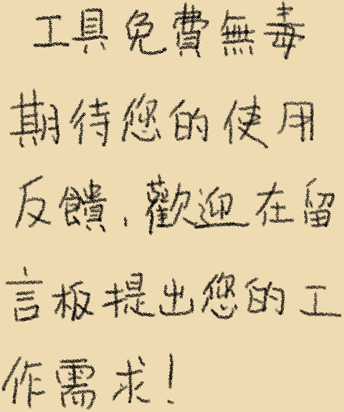 工具免費無毒
期待您的使用
反饋,歡迎在留
言板提出您的工
作需求!